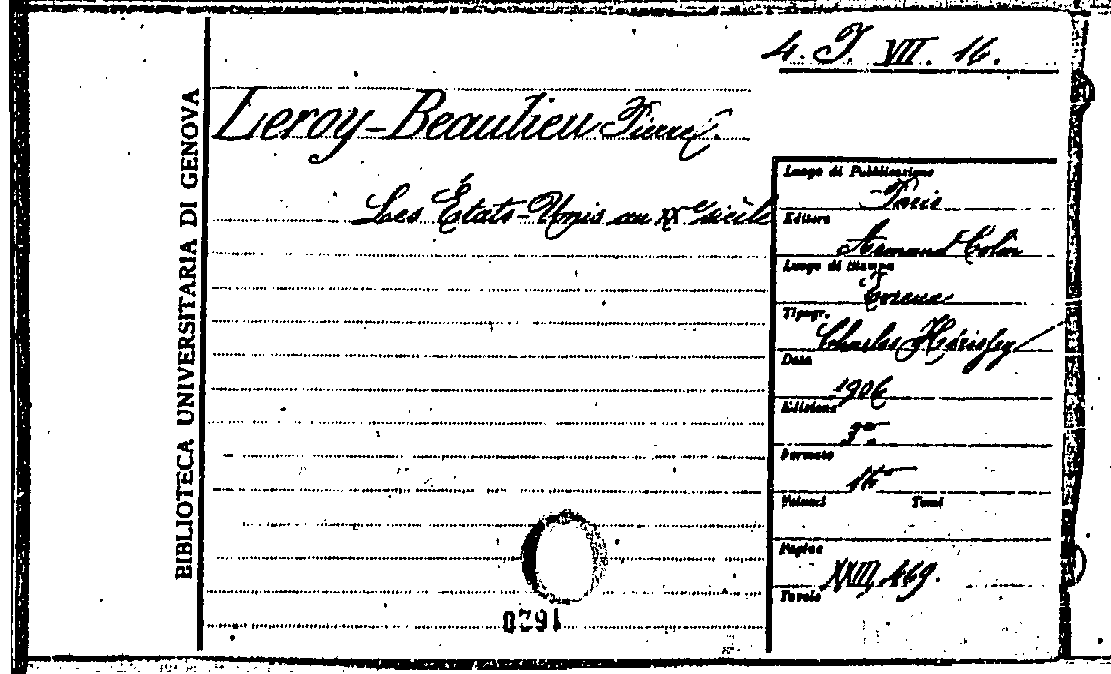 4. J. VII. 16.
BIBLIOTECA UNIVERSITARIA DI GENOVA
Leroy-Beaulieu Pierre.
Les États-Unis au XXe siècle
Luogo di Pubblicazione
Paris
Editore
Armand Colin
Luogo di Stampa
Evreux
Tipogr.
Charles Hérissey
Data
1906
Edizione
Formato
16°
Volumi Tomi
Pagine
XXIII, 469.
Tavole